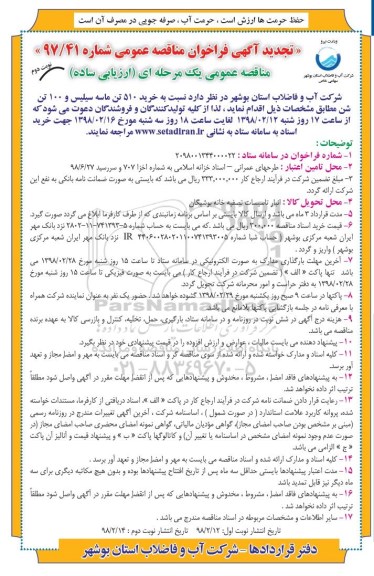 حفظ حرمت ها ارزش است ، حرمت آب ، صرفه جویی در مصرف آن است
« تجدید آگهی فراخوان مناقصه عمومی شماره ۹۷/۴۱ »
مناقصه عمومی یک مرحله ای (ارزیابی ساده)
نوبت دوم
وزارت نیرو
شرکت آب و فاضلاب استان بوشهر
شرکت آب و فاضلاب استان بوشهر در نظر دارد نسبت به خرید ۵۱۰ تن ماسه سیلیس و ۱۰۰ تن
شن مطابق مشخصات ذیل اقدام نماید ، لذا از کلیه تولیدکنندگان و فروشندگان دعوت می شود که
از ساعت ۱۷ روز شنبه ۱۳۹۸/۰۲/۱۲ لغایت ساعت ۱۸ روز سه شنبه مورخ ۱۳۹۸/۰۲/۱۶ جهت خرید
اسناد به سامانه ستاد به نشانی www.setadiran.ir مراجعه نمایند.
توضیحات :
۱- شماره فراخوان در سامانه ستاد : ۲۰۹۸۰۰۱۳۴۴۰۰۰۰۲۲
۲- محل تامین اعتبار : طرحهای عمرانی – اسناد خزانه اسلامی به شماره اخزا ۷۰۷ و سررسید ۹۸/۶/۲۷
۳- مبلغ تضمین شرکت در فرآیند ارجاع کار ۳۳۳,۰۰۰,۰۰۰ ریال می باشد که بایستی به صورت ضمانت نامه بانکی به نفع این
شرکت ارائه گردد.
۴- محل تحویل کالا : انبار تاسیسات تصفیه خانه بوشیگان
۵- مدت قرارداد ۳ ماه می باشد و ارسال کالا بایستی بر اساس برنامه زمانبندی که از طرف کارفرما ابلاغ می گردد صورت گیرد.
۶- قیمت خرید اسناد مناقصه ۲۰۰,۰۰۰ ریال می باشد .که می بایست به حساب شماره
ایران شعبه مرکزی بوشهر نزد بانک مهر ایران شعبه مرکزی
بوشهر ) واریز و گردد .
۷- آخرین مهلت بارگذاری مدارک به صورت الکترونیکی در سامانه ستاد تا ساعت ۱۵ روز شنبه مورخ ۱۳۹۸/۰۲/۲۸ می
باشد تنها پاکت « الف » ( تضمین شرکت در فرآیند ارجاع کار ) می بایست به صورت فیزیکی تا ساعت ۱۵ روز شنبه مورخ
۱۳۹۸/۰۲/۲۸ به دفتر حراست و امور محرمانه شرکت تحویل گردد.
۸- پاکتها در ساعت ۹ صبح روز یکشنبه مورخ ۱۳۹۸/۰۲/۲۹ گشوده خواهد شد. حضور یک نفر به عنوان نماینده شرکت همراه
با معرفی نامه در جلسه بازگشایی پاکتها بلامانع می باشد.
۹- هزینه درج آگهی در شش نوبت در روزنامه و در سامانه ستاد، بارگیری، حمل، تخلیه، کنترل و بازرسی کالا به عهده برنده
مناقصه می باشد.
۱۰- پیشنهاد دهنده می بایست مالیات ، عوارض و ارزش افزوده را در قیمت پیشنهادی خود در نظر بگیرد.
۱۱- کلیه اسناد و مدارک خواسته شده و ارائه شده از سوی مناقصه گر و اسناد مناقصه می بایست به مهر و امضا مجاز و تعهد
آور برسد.
۱۲- به پیشنهادهای فاقد امضا ، مشروط ، مخدوش و پیشنهادهایی که پس از انقضا مهلت مقرر در آگهی واصل شود مطلقاً
ترتیب اثر داده نخواهد شد.
۱۳- رعایت قرار دادن ضمانت نامه شرکت در فرآیند ارجاع کار در پاکت « الف »، اسناد دریافتی از کارفرما، مستندات خواسته
شده، پروانه کاربرد علامت استاندارد ( در صورت شمول ) ، اساسنامه شرکت ، آخرین آگهی تغییرات مندرج در روزنامه رسمی
(مبنی بر مشخص بودن صاحب امضای مجاز)، گواهی مؤدیان مالیاتی، گواهی نمونه امضای محضری صاحب امضای مجاز (در
صورت عدم وجود نمونه امضای مشخص در اساسنامه یا تغییر آن) و کاتالوگها پاکت « ب » و پیشنهاد قیمت و آنالیز آن پاکت
« ج » الزامی می باشد.
۱۴- کلیه اسناد و مدارک ارائه شده و اسناد مناقصه می بایست به مهر و امضا مجاز و تعهد آور برسد.
۱۵- مدت اعتبار پیشنهادها بایستی حداقل سه ماه پس از تاریخ افتتاح پیشنهادها بوده و بدون هیچ مکاتبه دیگری برای سه
ماه دیگر نیز قابل تمدید باشد
۱۶- به پیشنهادهای فاقد امضا ، مشروط ، مخدوش و پیشنهادهایی که پس از انقضا مهلت مقرر در آگهی واصل شود مطلقاً
ترتیب اثر داده نخواهد شد .
۱۷- سایر اطلاعات و مشخصات مربوطه در اسناد مناقصه مندرج می باشد .
تاریخ انتشار نوبت اول: ۹۸/۲/۱۲ تاریخ انتشار نوبت دوم : ۹۸/۲/۱۴
دفتر قراردادها – شرکت آب و فاضلاب استان بوشهر
ParsNamadData
۰۲۱-۸۸۳۴۹۶۷۰-۵